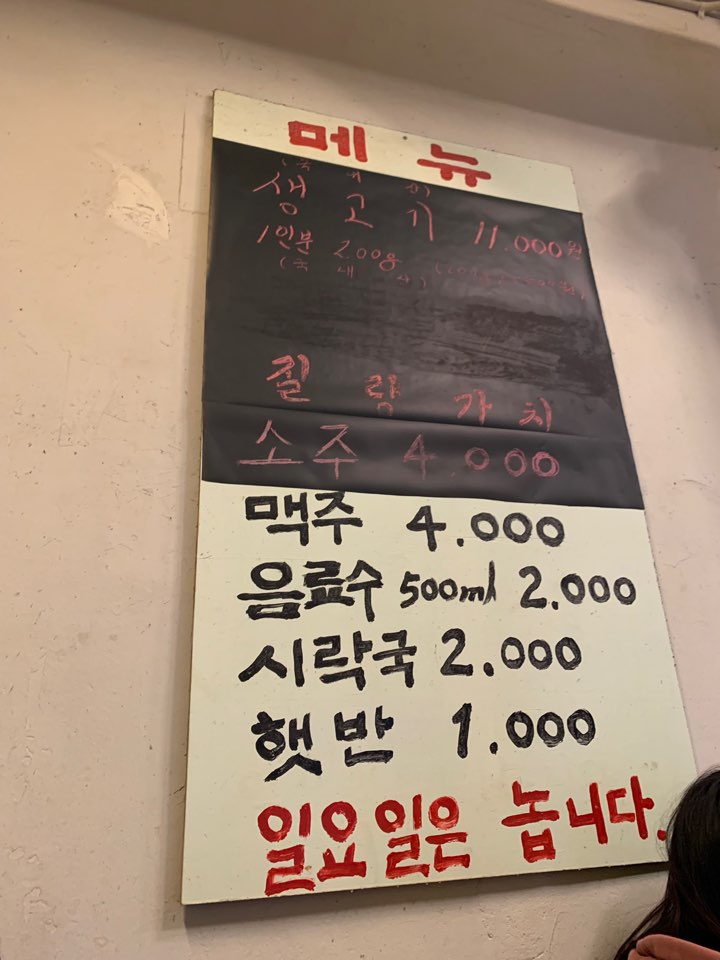 메뉴
(국내산)
생고기 11.000원
1인분 200g
(국내산)
질량가치
소주 4.000
맥주 4.000
음료수 500ml 2.000
시락국 2.000
햇반 1.000
일요일은 놉니다.